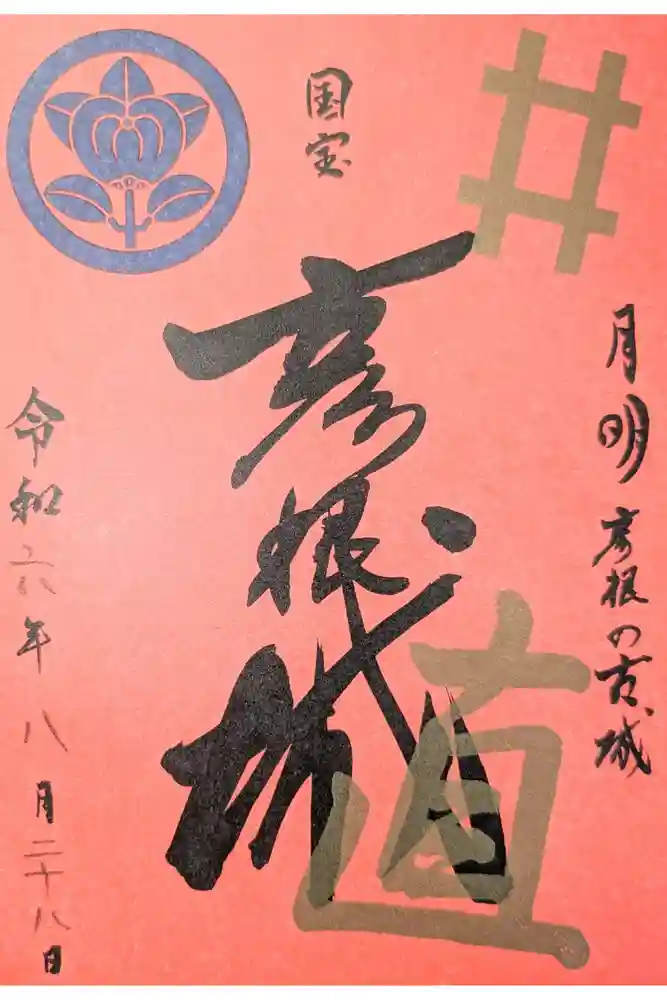 井
月明 彦根の古城
国宝
彦根城
直
令和六年八月二十八日